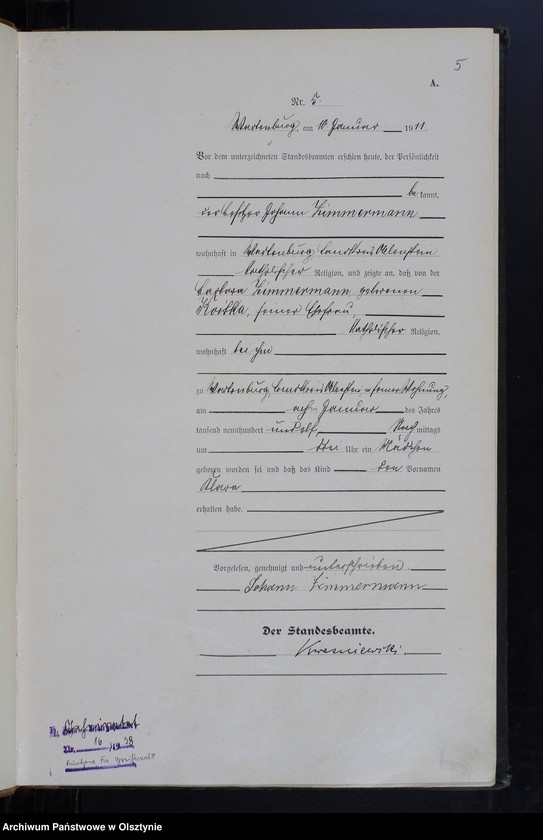 5
A.
Nr. 5.
Wartenburg, am 10 Januar 1911.
Vor dem unterzeichneten Standesbeamten erschien heute, der Persönlichkeit
nach
be kannt,
der Besitzer Johann Zimmermann
wohnhaft in Wartenburg, Landkreis Allenstein
katholischer Religion, und zeigte an, daß von der
Barbara Zimmermann, geborenen
seiner Ehefrau,
katholischer Religion,
wohnhaft bei ihm
zu Wartenburg, Landkreis Allenstein, in seiner Wohnung,
am Januar des Jahres
tausend neunhundert und elf Nach mittags
um Uhr ein Mädchen
geboren worden sei und daß das Kind den Vornamen
Klara
erhalten habe.
Vorgelesen, genehmigt und unterschrieben
Johann Zimmermann
Der Standesbeamte.
Nr. 16 /19 38
Archiwum Państwowe w Olsztynie